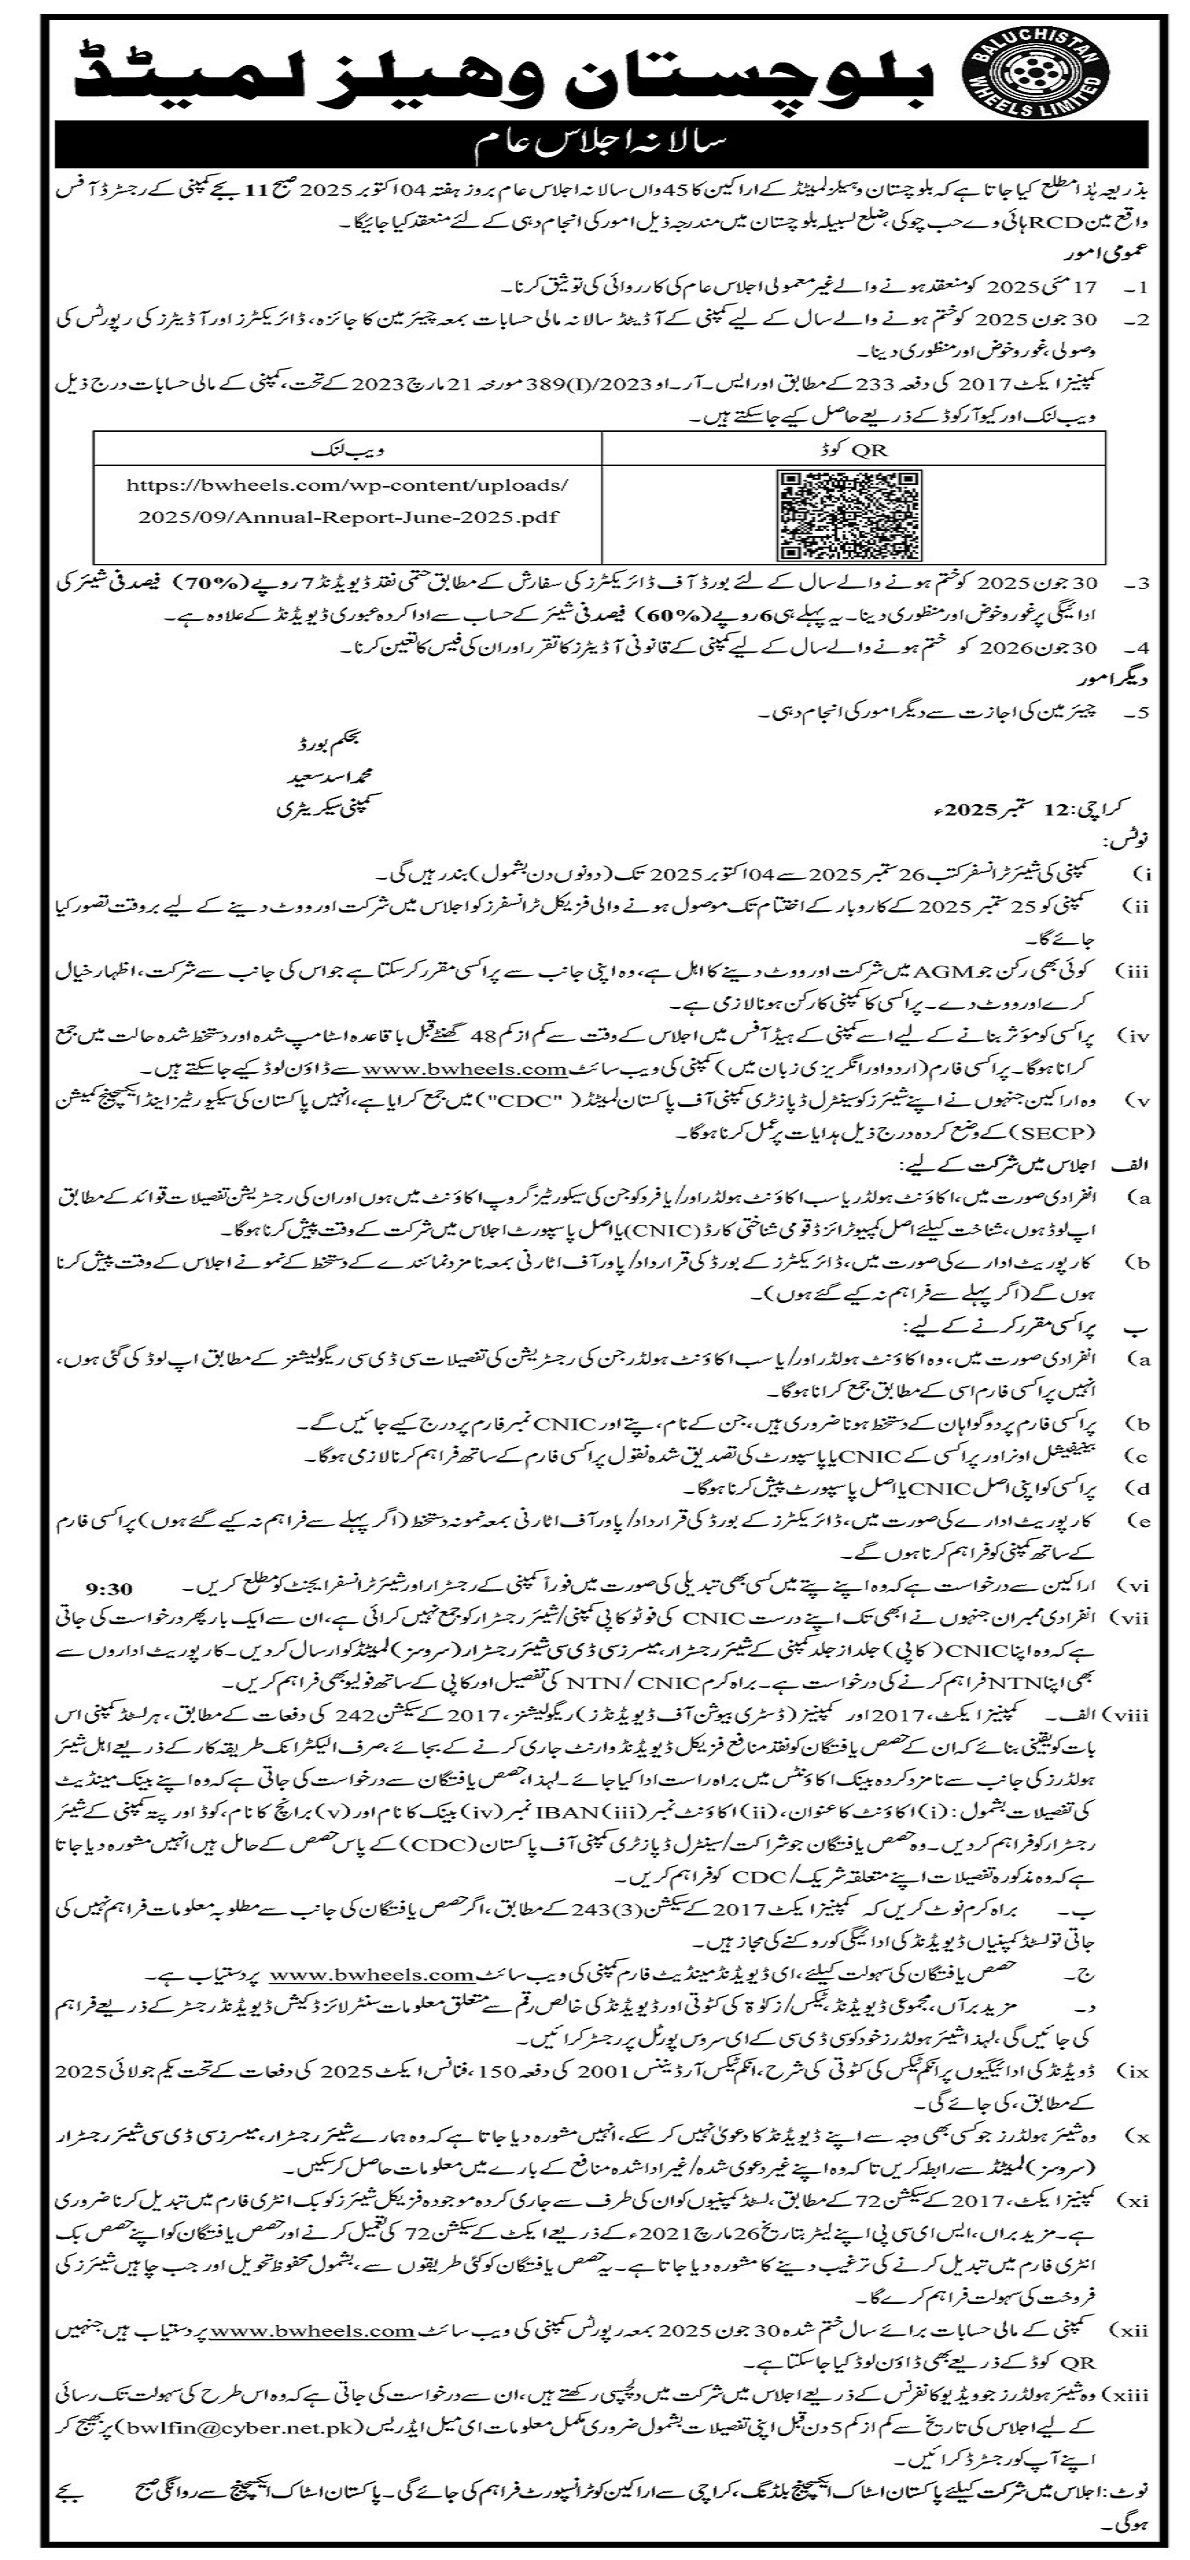 بلوچستان وھیلز لمیٹڈ
BALUCHISTAN WHEELS LIMITED
سالانہ اجلاس عام
بذریعہ ہٰذا مطلع کیا جاتا ہے کہ بلوچستان وہیلز لمیٹڈ کے اراکین کا 45 واں سالانہ اجلاس عام بروز ہفتہ 04 اکتوبر 2025 صبح 11 بجے کمپنی کے رجسٹرڈ آفس
واقع مین RCD ہائی وے حب چوکی، ضلع لسبیلہ بلوچستان میں مندرجہ ذیل امور کی انجام دہی کے لئے منعقد کیا جائیگا۔
عمومی امور
1۔ 17 مئی 2025 کو منعقد ہونے والے غیر معمولی اجلاس عام کی کارروائی کی توثیق کرنا۔
2۔ 30 جون 2025 کو ختم ہونے والے سال کے لیے کمپنی کے آڈیٹڈ سالانہ مالی حسابات بمعہ چیئرمین کا جائزہ، ڈائریکٹرز اور آڈیٹرز کی رپورٹس کی
وصولی، غور و خوض اور منظوری دینا۔
کمپنیز ایکٹ 2017 کی دفعہ 233 کے مطابق اور ایس۔آر۔او 389(I)/2023 مورخہ 21 مارچ 2023 کے تحت، کمپنی کے مالی حسابات درج ذیل
ویب لنک اور کیو آر کوڈ کے ذریعے حاصل کیے جاسکتے ہیں۔
QR کوڈ
ویب لنک
https://bwheels.com/wp-content/uploads/
2025/09/Annual-Report-June-2025.pdf
3۔ 30 جون 2025 کو ختم ہونے والے سال کے لئے بورڈ آف ڈائریکٹرز کی سفارش کے مطابق حتمی نقد ڈیویڈنڈ 7 روپے (70%) فیصد فی شیئر کی
ادائیگی پر غور و خوض اور منظوری دینا۔ یہ پہلے ہی 6 روپے (60%) فیصد فی شیئر کے حساب سے ادا کردہ عبوری ڈیویڈنڈ کے علاوہ ہے۔
4۔ 30 جون 2026 کو ختم ہونے والے سال کے لیے کمپنی کے قانونی آڈیٹرز کا تقرر اور ان کی فیس کا تعین کرنا۔
دیگر امور
5۔ چیئرمین کی اجازت سے دیگر امور کی انجام دہی۔
بحکم بورڈ
محمد اسد سعید
کمپنی سیکریٹری
کراچی: 12 ستمبر 2025ء
نوٹس:
i) کمپنی کی شیئر ٹرانسفر کتب 26 ستمبر 2025 سے 04 اکتوبر 2025 تک (دونوں دن بشمول) بند رہیں گی۔
ii) کمپنی کو 25 ستمبر 2025 کے کاروبار کے اختتام تک موصول ہونے والی فزیکل ٹرانسفرز کو اجلاس میں شرکت اور ووٹ دینے کے لیے بروقت تصور کیا
جائے گا۔
iii) کوئی بھی رکن جو AGM میں شرکت اور ووٹ دینے کا اہل ہے، وہ اپنی جانب سے پراکسی مقرر کر سکتا ہے جو اس کی جانب سے شرکت، اظہار خیال
کرے اور ووٹ دے۔ پراکسی کا کمپنی کا رکن ہونا لازمی ہے۔
iv) پراکسی کو مؤثر بنانے کے لیے اسے کمپنی کے ہیڈ آفس میں اجلاس کے وقت سے کم از کم 48 گھنٹے قبل باقاعدہ اسٹامپ شدہ اور دستخط شدہ حالت میں جمع
کرانا ہوگا۔ پراکسی فارم (اردو اور انگریزی زبان میں) کمپنی کی ویب سائٹ www.bwheels.com سے ڈاؤن لوڈ کیے جاسکتے ہیں۔
v) وہ اراکین جنہوں نے اپنے شیئرز کو سینٹرل ڈپازٹری کمپنی آف پاکستان لمیٹڈ ("CDC") میں جمع کرایا ہے، انہیں پاکستان کی سیکیورٹیز اینڈ ایکسچینج کمیشن
(SECP) کے وضع کردہ درج ذیل ہدایات پر عمل کرنا ہوگا۔
الف اجلاس میں شرکت کے لیے:
a) انفرادی صورت میں، اکاؤنٹ ہولڈر یا سب اکاؤنٹ ہولڈر اور/یا فرد کو جن کی سیکورٹیز گروپ اکاؤنٹ میں ہوں اور ان کی رجسٹریشن تفصیلات قوائد کے مطابق
اپ لوڈ ہوں، شناخت کیلئے اصل کمپیوٹرائزڈ قومی شناختی کارڈ (CNIC) یا اصل پاسپورٹ اجلاس میں شرکت کے وقت پیش کرنا ہوگا۔
b) کارپوریٹ ادارے کی صورت میں، ڈائریکٹرز کے بورڈ کی قرارداد/پاور آف اٹارنی بمعہ نامزد نمائندے کے دستخط کے نمونے اجلاس کے وقت پیش کرنا
ہوں گے (اگر پہلے سے فراہم نہ کیے گئے ہوں)۔
ب پراکسی مقرر کرنے کے لیے:
a) انفرادی صورت میں، وہ اکاؤنٹ ہولڈر اور/یا سب اکاؤنٹ ہولڈر جن کی رجسٹریشن کی تفصیلات سی ڈی سی ریگولیشنز کے مطابق اپ لوڈ کی گئی ہوں،
انہیں پراکسی فارم اسی کے مطابق جمع کرانا ہوگا۔
b) پراکسی فارم پر دو گواہان کے دستخط ہونا ضروری ہیں، جن کے نام، پتے اور CNIC نمبر فارم پر درج کیے جائیں گے۔
c) بینیفیشل اونر اور پراکسی کے CNIC یا پاسپورٹ کی تصدیق شدہ نقول پراکسی فارم کے ساتھ فراہم کرنا لازمی ہوگا۔
d) پراکسی کو اپنی اصل CNIC یا اصل پاسپورٹ پیش کرنا ہوگا۔
e) کارپوریٹ ادارے کی صورت میں، ڈائریکٹرز کے بورڈ کی قرارداد/پاور آف اٹارنی بمعہ نمونہ دستخط (اگر پہلے سے فراہم نہ کیے گئے ہوں) پراکسی فارم
کے ساتھ کمپنی کو فراہم کرنا ہوں گے۔
vi) اراکین سے درخواست ہے کہ وہ اپنے پتے میں کسی بھی تبدیلی کی صورت میں فوراً کمپنی کے رجسٹرار اور شیئر ٹرانسفر ایجنٹ کو مطلع کریں۔ 9:30
vii) انفرادی ممبران جنہوں نے ابھی تک اپنے درست CNIC کی فوٹو کاپی کمپنی/شیئر رجسٹرار کو جمع نہیں کرائی ہے، ان سے ایک بار پھر درخواست کی جاتی
ہے کہ وہ اپنا CNIC (کاپی) جلد از جلد کمپنی کے شیئر رجسٹرار، میسرز سی ڈی سی شیئر رجسٹرار (سروسز) لمیٹڈ کو ارسال کردیں۔ کارپوریٹ اداروں سے
بھی اپنا NTN فراہم کرنے کی درخواست ہے۔ براہ کرم NTN/CNIC کی تفصیل اور کاپی کے ساتھ فولیو بھی فراہم کریں۔
viii) الف۔ کمپنیز ایکٹ، 2017 اور کمپنیز (ڈسٹری بیوشن آف ڈیویڈنڈز) ریگولیشنز، 2017 کے سیکشن 242 کی دفعات کے مطابق، ہر لسٹڈ کمپنی اس
بات کو یقینی بنائے کہ ان کے حصص یافتگان کو نقد منافع فزیکل ڈیویڈنڈ وارنٹ جاری کرنے کے بجائے، صرف الیکٹرانک طریقہ کار کے ذریعے اہل شیئر
ہولڈرز کی جانب سے نامزد کردہ بینک اکاؤنٹس میں براہ راست ادا کیا جائے۔ لہذا، حصص یافتگان سے درخواست کی جاتی ہے کہ وہ اپنے بینک مینڈیٹ
کی تفصیلات بشمول: (i) اکاؤنٹ کا عنوان، (ii) اکاؤنٹ نمبر (iii) IBAN نمبر (iv) بینک کا نام اور (v) برانچ کا نام، کوڈ اور پتہ کمپنی کے شیئر
رجسٹرار کو فراہم کردیں۔ وہ حصص یافتگان جو شراکت/سینٹرل ڈپازٹری کمپنی آف پاکستان (CDC) کے پاس حصص کے حامل ہیں انہیں مشورہ دیا جاتا
ہے کہ وہ مذکورہ تفصیلات اپنے متعلقہ شریک/CDC کو فراہم کریں۔
ب۔ براہ کرم نوٹ کریں کہ کمپنیز ایکٹ 2017 کے سیکشن 243(3) کے مطابق، اگر حصص یافتگان کی جانب سے مطلوبہ معلومات فراہم نہیں کی
جاتی تو لسٹڈ کمپنیاں ڈیویڈنڈ کی ادائیگی کو روکنے کی مجاز ہیں۔
ج۔ حصص یافتگان کی سہولت کیلئے، ای ڈیویڈنڈ مینڈیٹ فارم کمپنی کی ویب سائٹ www.bwheels.com پر دستیاب ہے۔
د۔ مزید برآں، مجموعی ڈیویڈنڈ، ٹیکس/زکوٰۃ کی کٹوتی اور ڈیویڈنڈ کی خالص رقم سے متعلق معلومات سنٹرلائزڈ کیش ڈیویڈنڈ رجسٹر کے ذریعے فراہم
کی جائیں گی، لہذا شیئر ہولڈرز خود کو سی ڈی سی کے ای سروس پورٹل پر رجسٹر کرائیں۔
ix) ڈویڈنڈ کی ادائیگیوں پر انکم ٹیکس کی کٹوتی کی شرح، انکم ٹیکس آرڈیننس 2001 کی دفعہ 150، فنانس ایکٹ 2025 کی دفعات کے تحت یکم جولائی 2025
کے مطابق، کی جائے گی۔
x) وہ شیئر ہولڈرز جو کسی بھی وجہ سے اپنے ڈیویڈنڈ کا دعویٰ نہیں کر سکے، انہیں مشورہ دیا جاتا ہے کہ وہ ہمارے شیئر رجسٹرار، میسرز سی ڈی سی شیئر رجسٹرار
(سروسز) لمیٹڈ سے رابطہ کریں تاکہ وہ اپنے غیر دعوی شدہ/غیر ادا شدہ منافع کے بارے میں معلومات حاصل کرسکیں۔
xi) کمپنیز ایکٹ، 2017 کے سیکشن 72 کے مطابق، لسٹڈ کمپنیوں کو ان کی طرف سے جاری کردہ موجودہ فزیکل شیئرز کو بک انٹری فارم میں تبدیل کرنا ضروری
ہے۔ مزید براں، ایس ای سی پی اپنے لیٹر بتاریخ 26 مارچ 2021ء کے ذریعے ایکٹ کے سیکشن 72 کی تعمیل کرنے اور حصص یافتگان کو اپنے حصص بک
انٹری فارم میں تبدیل کرنے کی ترغیب دینے کا مشورہ دیا جاتا ہے۔ یہ حصص یافتگان کو کئی طریقوں سے، بشمول محفوظ تحویل اور جب چاہیں شیئرز کی
فروخت کی سہولت فراہم کرے گا۔
xii) کمپنی کے مالی حسابات برائے سال ختم شدہ 30 جون 2025 بمعہ رپورٹس کمپنی کی ویب سائٹ www.bwheels.com پر دستیاب ہیں جنہیں
QR کوڈ کے ذریعے بھی ڈاؤن لوڈ کیا جاسکتا ہے۔
xiii) وہ شیئر ہولڈرز جو ویڈیو کانفرنس کے ذریعے اجلاس میں شرکت میں دلچسپی رکھتے ہیں، ان سے درخواست کی جاتی ہے کہ وہ اس طرح کی سہولت تک رسائی
کے لیے اجلاس کی تاریخ سے کم از کم 5 دن قبل اپنی تفصیلات بشمول ضروری مکمل معلومات ای میل ایڈریس (bwlfin@cyber.net.pk) پر بھیج کر
اپنے آپ کو رجسٹرڈ کرائیں۔
نوٹ: اجلاس میں شرکت کیلئے پاکستان اسٹاک ایکسچینج بلڈنگ، کراچی سے اراکین کو ٹرانسپورٹ فراہم کی جائے گی۔ پاکستان اسٹاک ایکسچینج سے روانگی صبح بجے
ہوگی۔